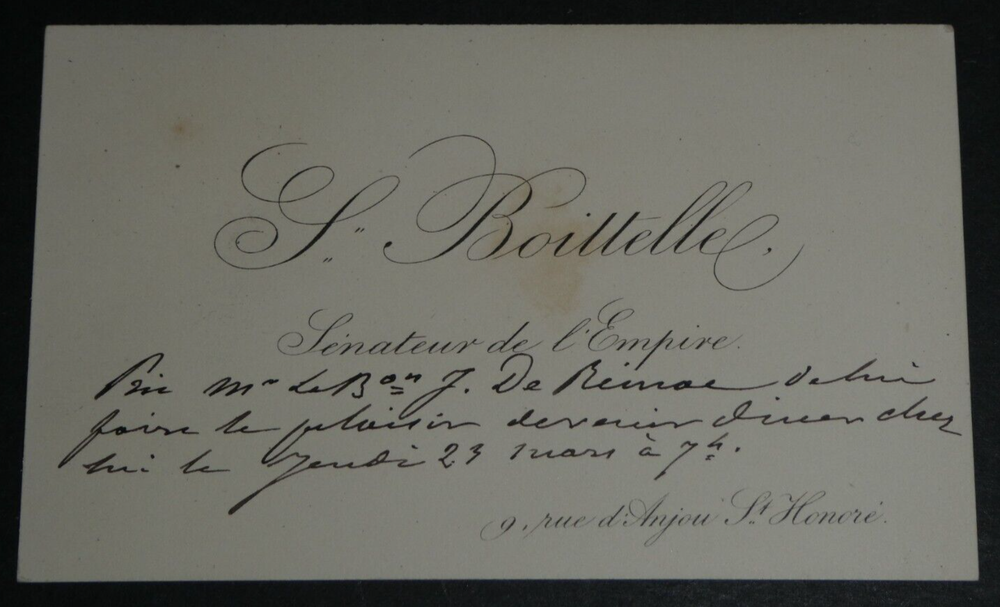 S. Boittelle,
Sénateur de l'Empire.
Prie Mr Le Bon J. De de lui
faire le plaisir de venir diner chez
lui le Jeudi 23 mars à 7h.
9, rue d'Anjou St. Honoré.